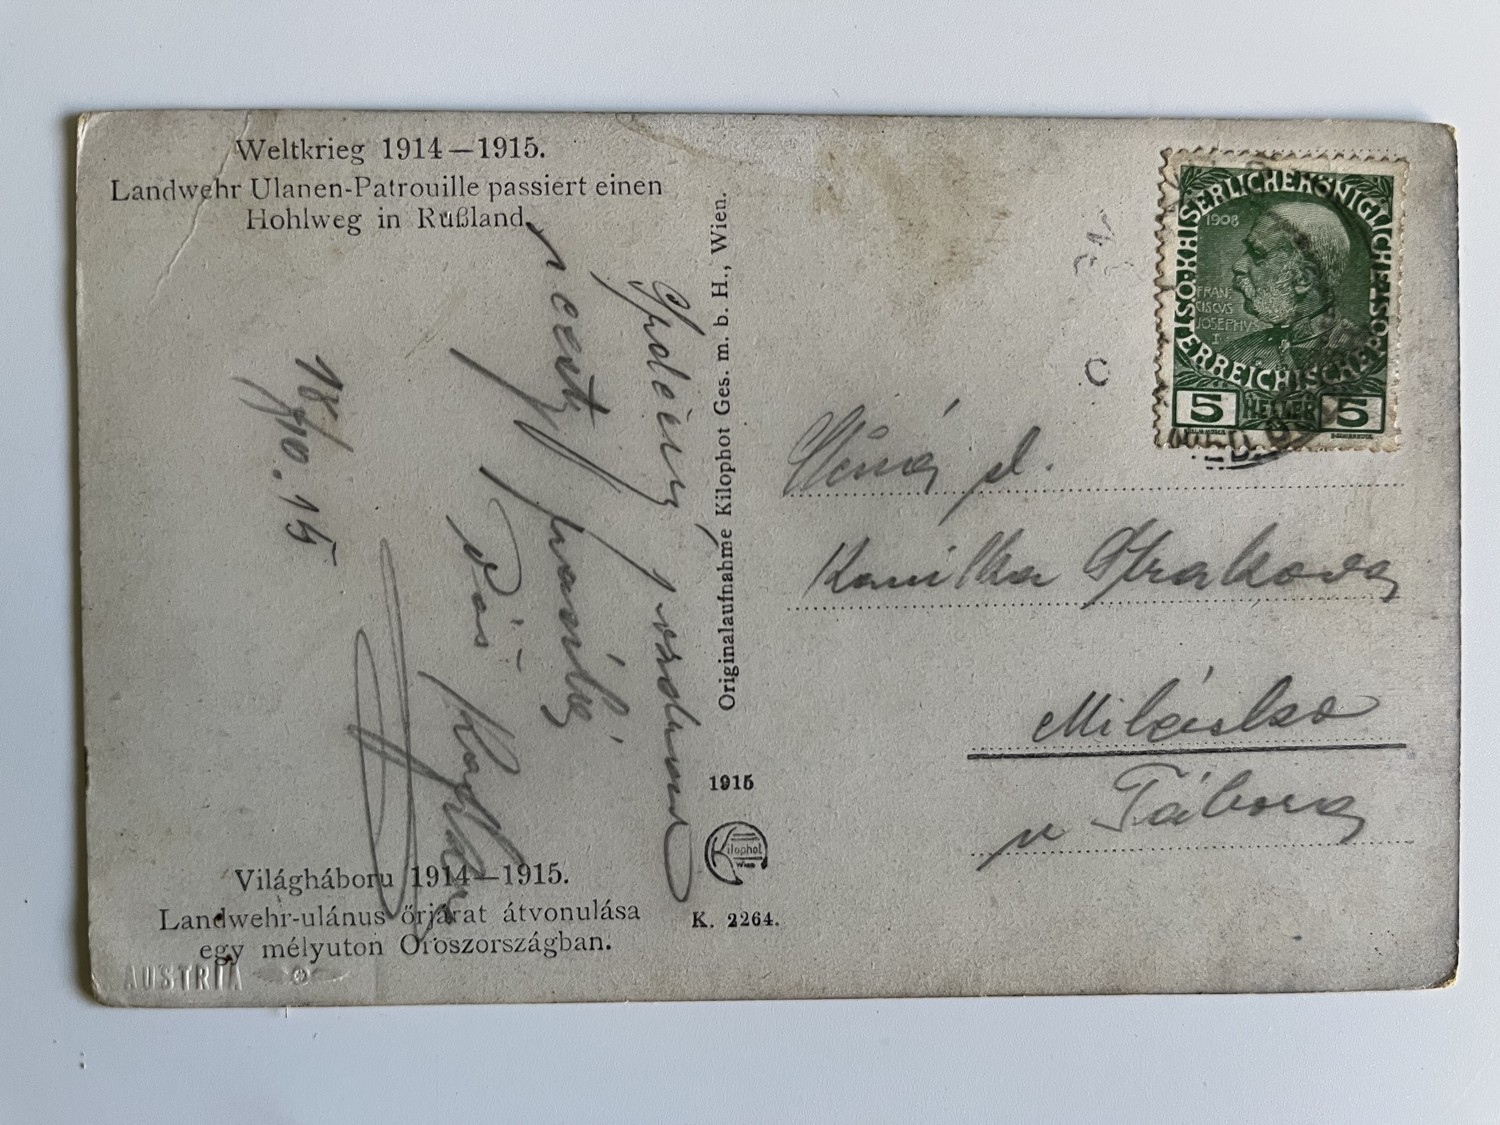 Weltkrieg 1914—1915.
Landwehr Ulanen-Patrouille passiert einen
Hohlweg in Rußland.
Srdečný pozdrav
a
Váš
18/10.15
Originalaufnahme Kilophot Ges. m. b. H., Wien.
1915
Kilophot
Wien
K. 2264.
Világháboru 1914—1915.
Landwehr-ulánus őrjárat átvonulása
egy mélyuton Oroszországban.
AUSTRIA
KAISERLICHEKÖNIGLICHE
ÖSTERREICHISCHEPOST
1908
FRAN-
CISCVS
JOSEPHVS
I
5 HELLER 5
sl.
Kamilka Strakova
Milčicko
u Tábora